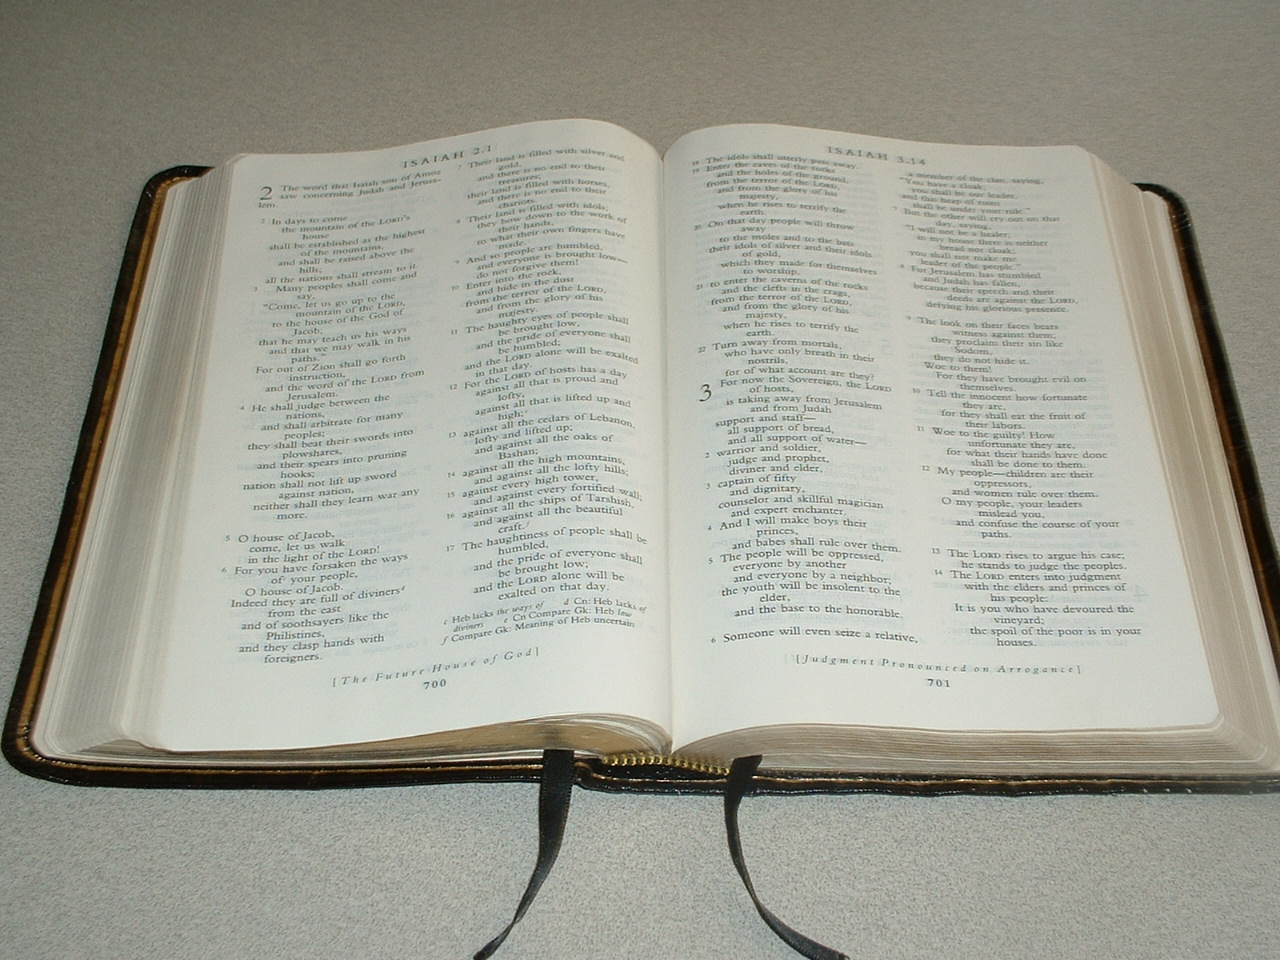 ISAIAH 2.1
2 The word that Isaiah son of Amoz
saw concerning Judah and Jerusa-
lem.
2 In days to come
the mountain of the LORD's
house
shall be established as the highest
of the mountains,
and shall be raised above the
hills;
all the nations shall stream to it.
3 Many peoples shall come and
say,
"Come, let us go up to the
mountain of the LORD,
to the house of the God of
Jacob;
that he may teach us his ways
and that we may walk in his
paths."
For out of Zion shall go forth
instruction,
and the word of the LORD from
Jerusalem.
4 He shall judge between the
nations,
and shall arbitrate for many
peoples;
they shall beat their swords into
plowshares,
and their spears into pruning
hooks;
nation shall not lift up sword
against nation,
neither shall they learn war any
more.
5 O house of Jacob,
come, let us walk
in the light of the LORD!
6 For you have forsaken the ways
of your people,
O house of Jacob.
Indeed they are full of diviners d
from the east
and of soothsayers like the
Philistines,
and they clasp hands with
foreigners.
7 Their land is filled with silver and
gold,
and there is no end to their
treasures;
their land is filled with horses,
and there is no end to their
chariots.
8 Their land is filled with idols;
they bow down to the work of
their hands,
to what their own fingers have
made.
9 And so people are humbled,
and everyone is brought low—
do not forgive them!
10 Enter into the rock,
and hide in the dust
from the terror of the LORD,
and from the glory of his
majesty.
11 The haughty eyes of people shall
be brought low,
and the pride of everyone shall
be humbled;
and the LORD alone will be exalted
in that day.
12 For the LORD of hosts has a day
against all that is proud and
lofty,
against all that is lifted up and
high; e
13 against all the cedars of Lebanon,
lofty and lifted up;
and against all the oaks of
Bashan;
14 against all the high mountains,
and against all the lofty hills;
15 against every high tower,
and against every fortified wall;
16 against all the ships of Tarshish,
and against all the beautiful
craft. f
17 The haughtiness of people shall be
humbled,
and the pride of everyone shall
be brought low;
and the LORD alone will be
exalted on that day.
c Heb lacks the ways of d Cn: Heb lacks of
diviners e Cn Compare Gk: Heb low
f Compare Gk: Meaning of Heb uncertain
[The Future House of God]
700
ISAIAH 3.14
18 The idols shall utterly pass away.
19 Enter the caves of the rocks
and the holes of the ground,
from the terror of the LORD,
and from the glory of his
majesty,
when he rises to terrify the
earth.
20 On that day people will throw
away
to the moles and to the bats
their idols of silver and their idols
of gold,
which they made for themselves
to worship,
21 to enter the caverns of the rocks
and the clefts in the crags,
from the terror of the LORD,
and from the glory of his
majesty,
when he rises to terrify the
earth.
22 Turn away from mortals,
who have only breath in their
nostrils,
for of what account are they?
3 For now the Sovereign, the LORD
of hosts,
is taking away from Jerusalem
and from Judah
support and staff—
all support of bread,
and all support of water—
2 warrior and soldier,
judge and prophet,
diviner and elder,
3 captain of fifty
and dignitary,
counselor and skillful magician
and expert enchanter.
4 And I will make boys their
princes,
and babes shall rule over them.
5 The people will be oppressed,
everyone by another
and everyone by a neighbor;
the youth will be insolent to the
elder,
and the base to the honorable.
6 Someone will even seize a relative,
a member of the clan, saying,
"You have a cloak;
you shall be our leader,
and this heap of ruins
shall be under your rule."
7 But the other will cry out on that
day, saying,
"I will not be a healer;
in my house there is neither
bread nor cloak;
you shall not make me
leader of the people."
8 For Jerusalem has stumbled
and Judah has fallen,
because their speech and their
deeds are against the LORD,
defying his glorious presence.
9 The look on their faces bears
witness against them;
they proclaim their sin like
Sodom,
they do not hide it.
Woe to them!
For they have brought evil on
themselves.
10 Tell the innocent how fortunate
they are,
for they shall eat the fruit of
their labors.
11 Woe to the guilty! How
unfortunate they are,
for what their hands have done
shall be done to them.
12 My people—children are their
oppressors,
and women rule over them.
O my people, your leaders
mislead you,
and confuse the course of your
paths.
13 The LORD rises to argue his case;
he stands to judge the peoples.
14 The LORD enters into judgment
with the elders and princes of
his people:
It is you who have devoured the
vineyard;
the spoil of the poor is in your
houses.
[Judgment Pronounced on Arrogance]
701